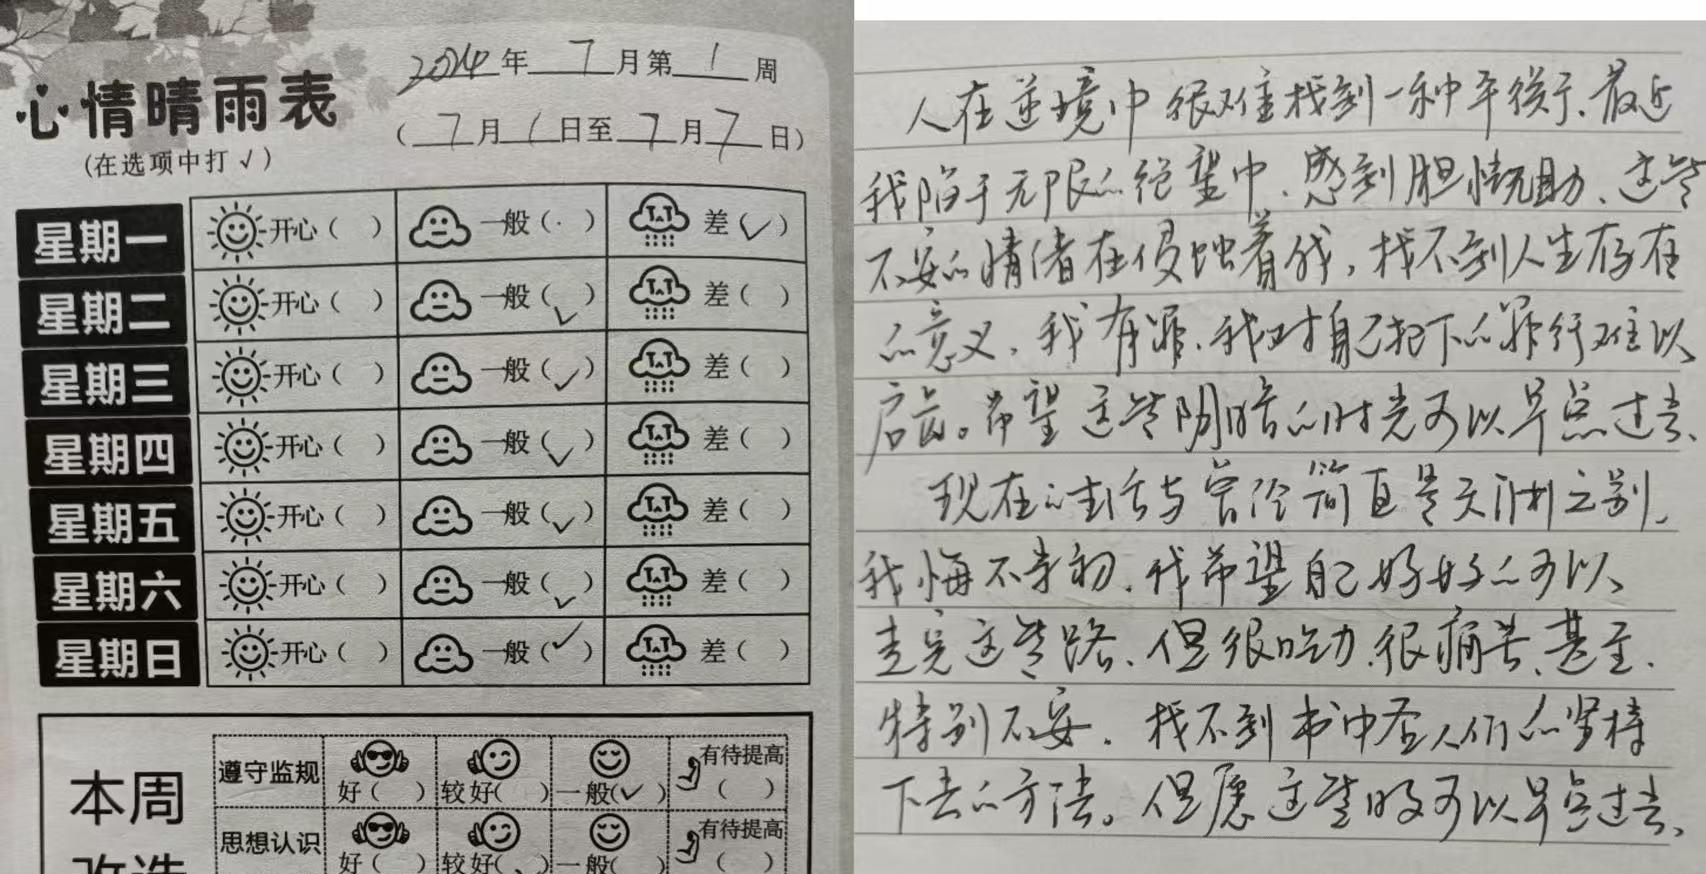 心情晴雨表
(在选项中打√)
2024年7月第1周
(7月1日至7月7日)
星期一 开心( ) 一般( ) 差(√)
星期二 开心( ) 一般(√) 差( )
星期三 开心( ) 一般(√) 差( )
星期四 开心( ) 一般(√) 差( )
星期五 开心( ) 一般(√) 差( )
星期六 开心( ) 一般(√) 差( )
星期日 开心( ) 一般(√) 差( )
本周
改造
遵守监规 好( ) 较好( ) 一般(√) 有待提高( )
思想认识 好( ) 较好( ) 一般( ) 有待提高( )
人在逆境中很难找到一种平衡、最近
我陷于无限的绝望中、感到胆怯无助、这些
不安的情绪在侵蚀着我，找不到人生存在
的意义，我有罪、我对自己犯下的罪行难以
启齿。希望这些阴暗的时光可以早点过去、
现在的生活与曾经简直是天壤之别，
我悔不当初、我希望自己好好的可以、
走完这些路、但很吃力、很痛苦、甚至、
特别不安、找不到书中圣人们的坚持
下去的方法。但愿这些时可以早点过去、